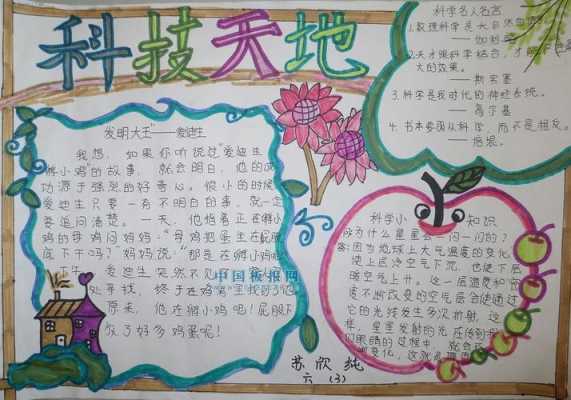 科技天地
发明大王"——爱迪生
我想，如果你听说过"爱迪生
孵小鸡"的故事，就会明白，他的成
功源于强烈的好奇心。很小的时候
爱迪生只要一有不明白的事，就一定
要追问清楚。一天，他指着正在孵小
鸡的母鸡问妈妈："母鸡把蛋坐在屁股
底下干吗？"妈妈说
爱迪生突然不见
处寻找，终于在鸡窝里找到了他
原来，他在孵小鸡呢！屁股下
放了好多鸡蛋呢！
中国板报网
苏欣纯
六（3）
科学名人名言
1.数理科学是大自
——伽利略
2.
大的效果。
——斯宾塞
3.科学是我时代的神经系统。
——高尔基
4.书本要跟从科学，而不是相反。
——培根。
科学小知识
为什么星星会一闪一闪的？
答：因为地球上大气温度的变化
使上层冷空气下沉，也使下层
暖空气上升。这一层温度和密
度不断改变的空气层会使通过
它的光线发生多次折射，这
样，星星发射的光在传到
们眼睛的过程中，就会